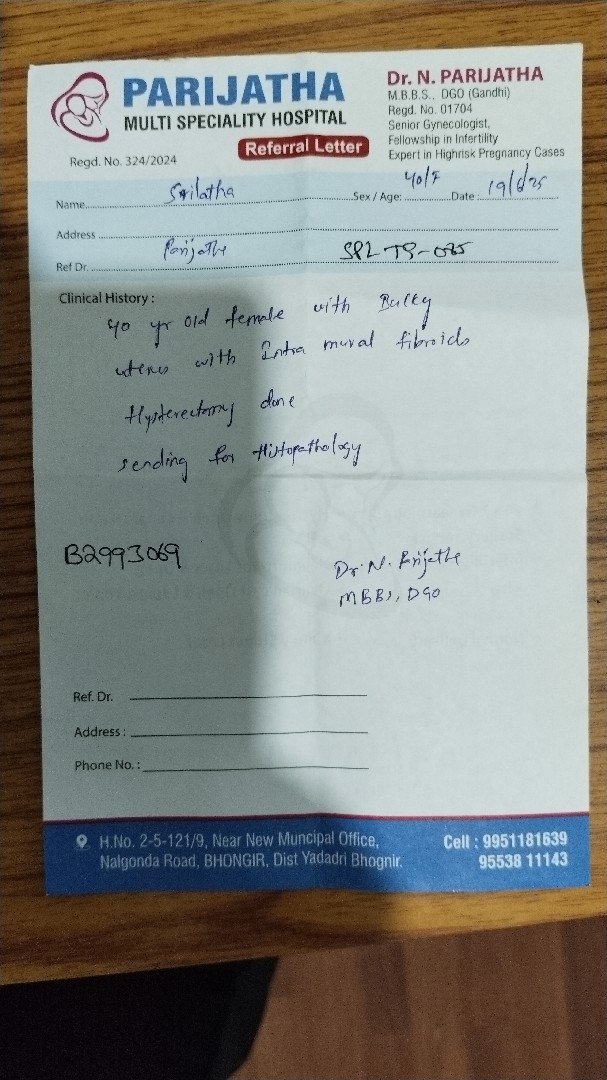 PARIJATHA
MULTI SPECIALITY HOSPITAL
Regd. No. 324/2024
Referral Letter
Dr. N. PARIJATHA
M.B.B.S., DGO (Gandhi)
Regd. No. 01704
Senior Gynecologist,
Fellowship in Infertility
Expert in Highrisk Pregnancy Cases
Name Srilatha Sex / Age: 40/F Date: 19/6/25
Address
Ref Dr. Parijatha SPL TS-085
Clinical History :
40 yr old female with Bulky
uterus with Intra mural fibroids
Hysterectomy done
sending for Histopathology
B2993069
Dr. N. Parijatha
MBBS, DGO
Ref. Dr.
Address :
Phone No. :
H.No. 2-5-121/9, Near New Muncipal Office,
Nalgonda Road, BHONGIR, Dist Yadadri Bhognir.
Cell : 9951181639
95538 11143